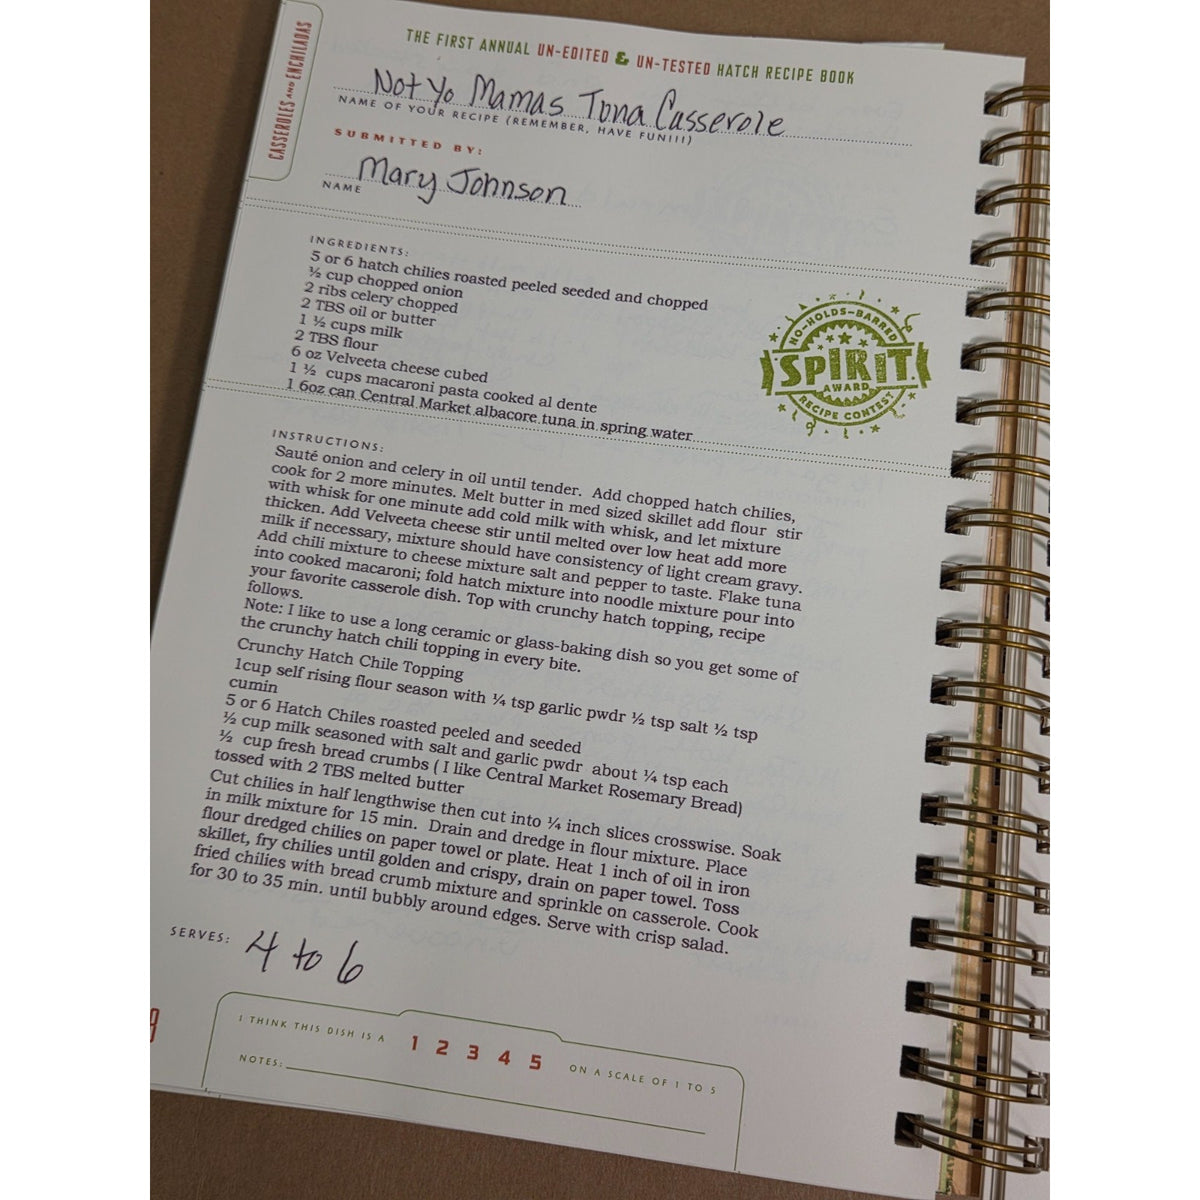 CASSEROLES AND ENCHILADAS
THE FIRST ANNUAL UN-EDITED & UN-TESTED HATCH RECIPE BOOK
Not Yo Mamas Tuna Casserole
NAME OF YOUR RECIPE (REMEMBER, HAVE FUN!!!)
SUBMITTED BY:
Mary Johnson
NAME
INGREDIENTS:
5 or 6 hatch chilies roasted peeled seeded and chopped
½ cup chopped onion
2 ribs celery chopped
2 TBS oil or butter
1 ½ cups milk
2 TBS flour
6 oz Velveeta cheese cubed
1 ½ cups macaroni pasta cooked al dente
1 6oz can Central Market albacore tuna in spring water
NO-HOLDS-BARRED
SPIRIT
AWARD
RECIPE CONTEST
INSTRUCTIONS:
Sauté onion and celery in oil until tender. Add chopped hatch chilies,
cook for 2 more minutes. Melt butter in med sized skillet add flour stir
with whisk for one minute add cold milk with whisk, and let mixture
thicken. Add Velveeta cheese stir until melted over low heat add more
milk if necessary, mixture should have consistency of light cream gravy.
Add chili mixture to cheese mixture salt and pepper to taste. Flake tuna
into cooked macaroni; fold hatch mixture into noodle mixture pour into
your favorite casserole dish. Top with crunchy hatch topping, recipe
follows.
Note: I like to use a long ceramic or glass-baking dish so you get some of
the crunchy hatch chili topping in every bite.
Crunchy Hatch Chile Topping
1cup self rising flour season with ¼ tsp garlic pwdr ½ tsp salt ½ tsp
cumin
5 or 6 Hatch Chiles roasted peeled and seeded
½ cup milk seasoned with salt and garlic pwdr about ¼ tsp each
½ cup fresh bread crumbs ( I like Central Market Rosemary Bread)
tossed with 2 TBS melted butter
Cut chilies in half lengthwise then cut into ¼ inch slices crosswise. Soak
in milk mixture for 15 min. Drain and dredge in flour mixture. Place
flour dredged chilies on paper towel or plate. Heat 1 inch of oil in iron
skillet, fry chilies until golden and crispy, drain on paper towel. Toss
fried chilies with bread crumb mixture and sprinkle on casserole. Cook
for 30 to 35 min. until bubbly around edges. Serve with crisp salad.
SERVES: 4 to 6
I THINK THIS DISH IS A 1 2 3 4 5 ON A SCALE OF 1 TO 5
NOTES: